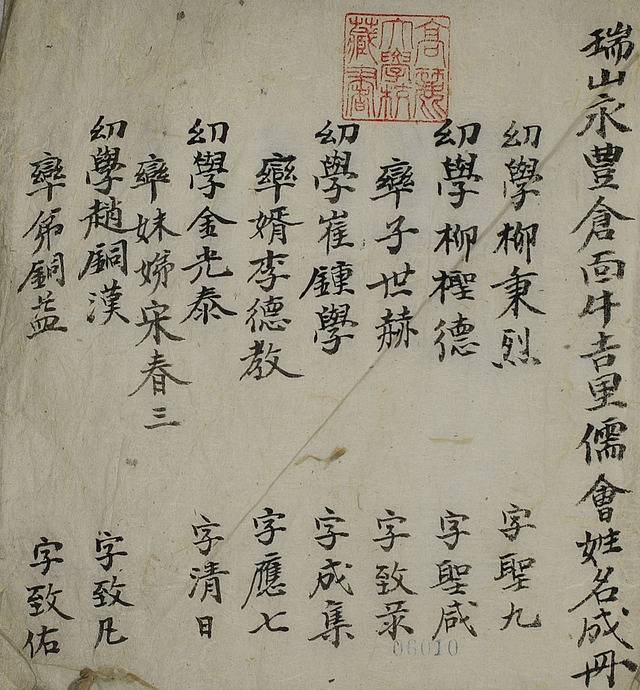 瑞山永豊倉面牛吉里儒會姓名成冊
幼學柳秉烈 字聖九
幼學柳檉德 字聖咸
率子世赫 字致彔
幼學崔鍾學 字成集
率婿李德教 字應七
幼學金光泰 字清日
率妹娣宋春三
幼學趙銅漢 字致凡
率弟銅益 字致佑
高麗大學校藏書
06010